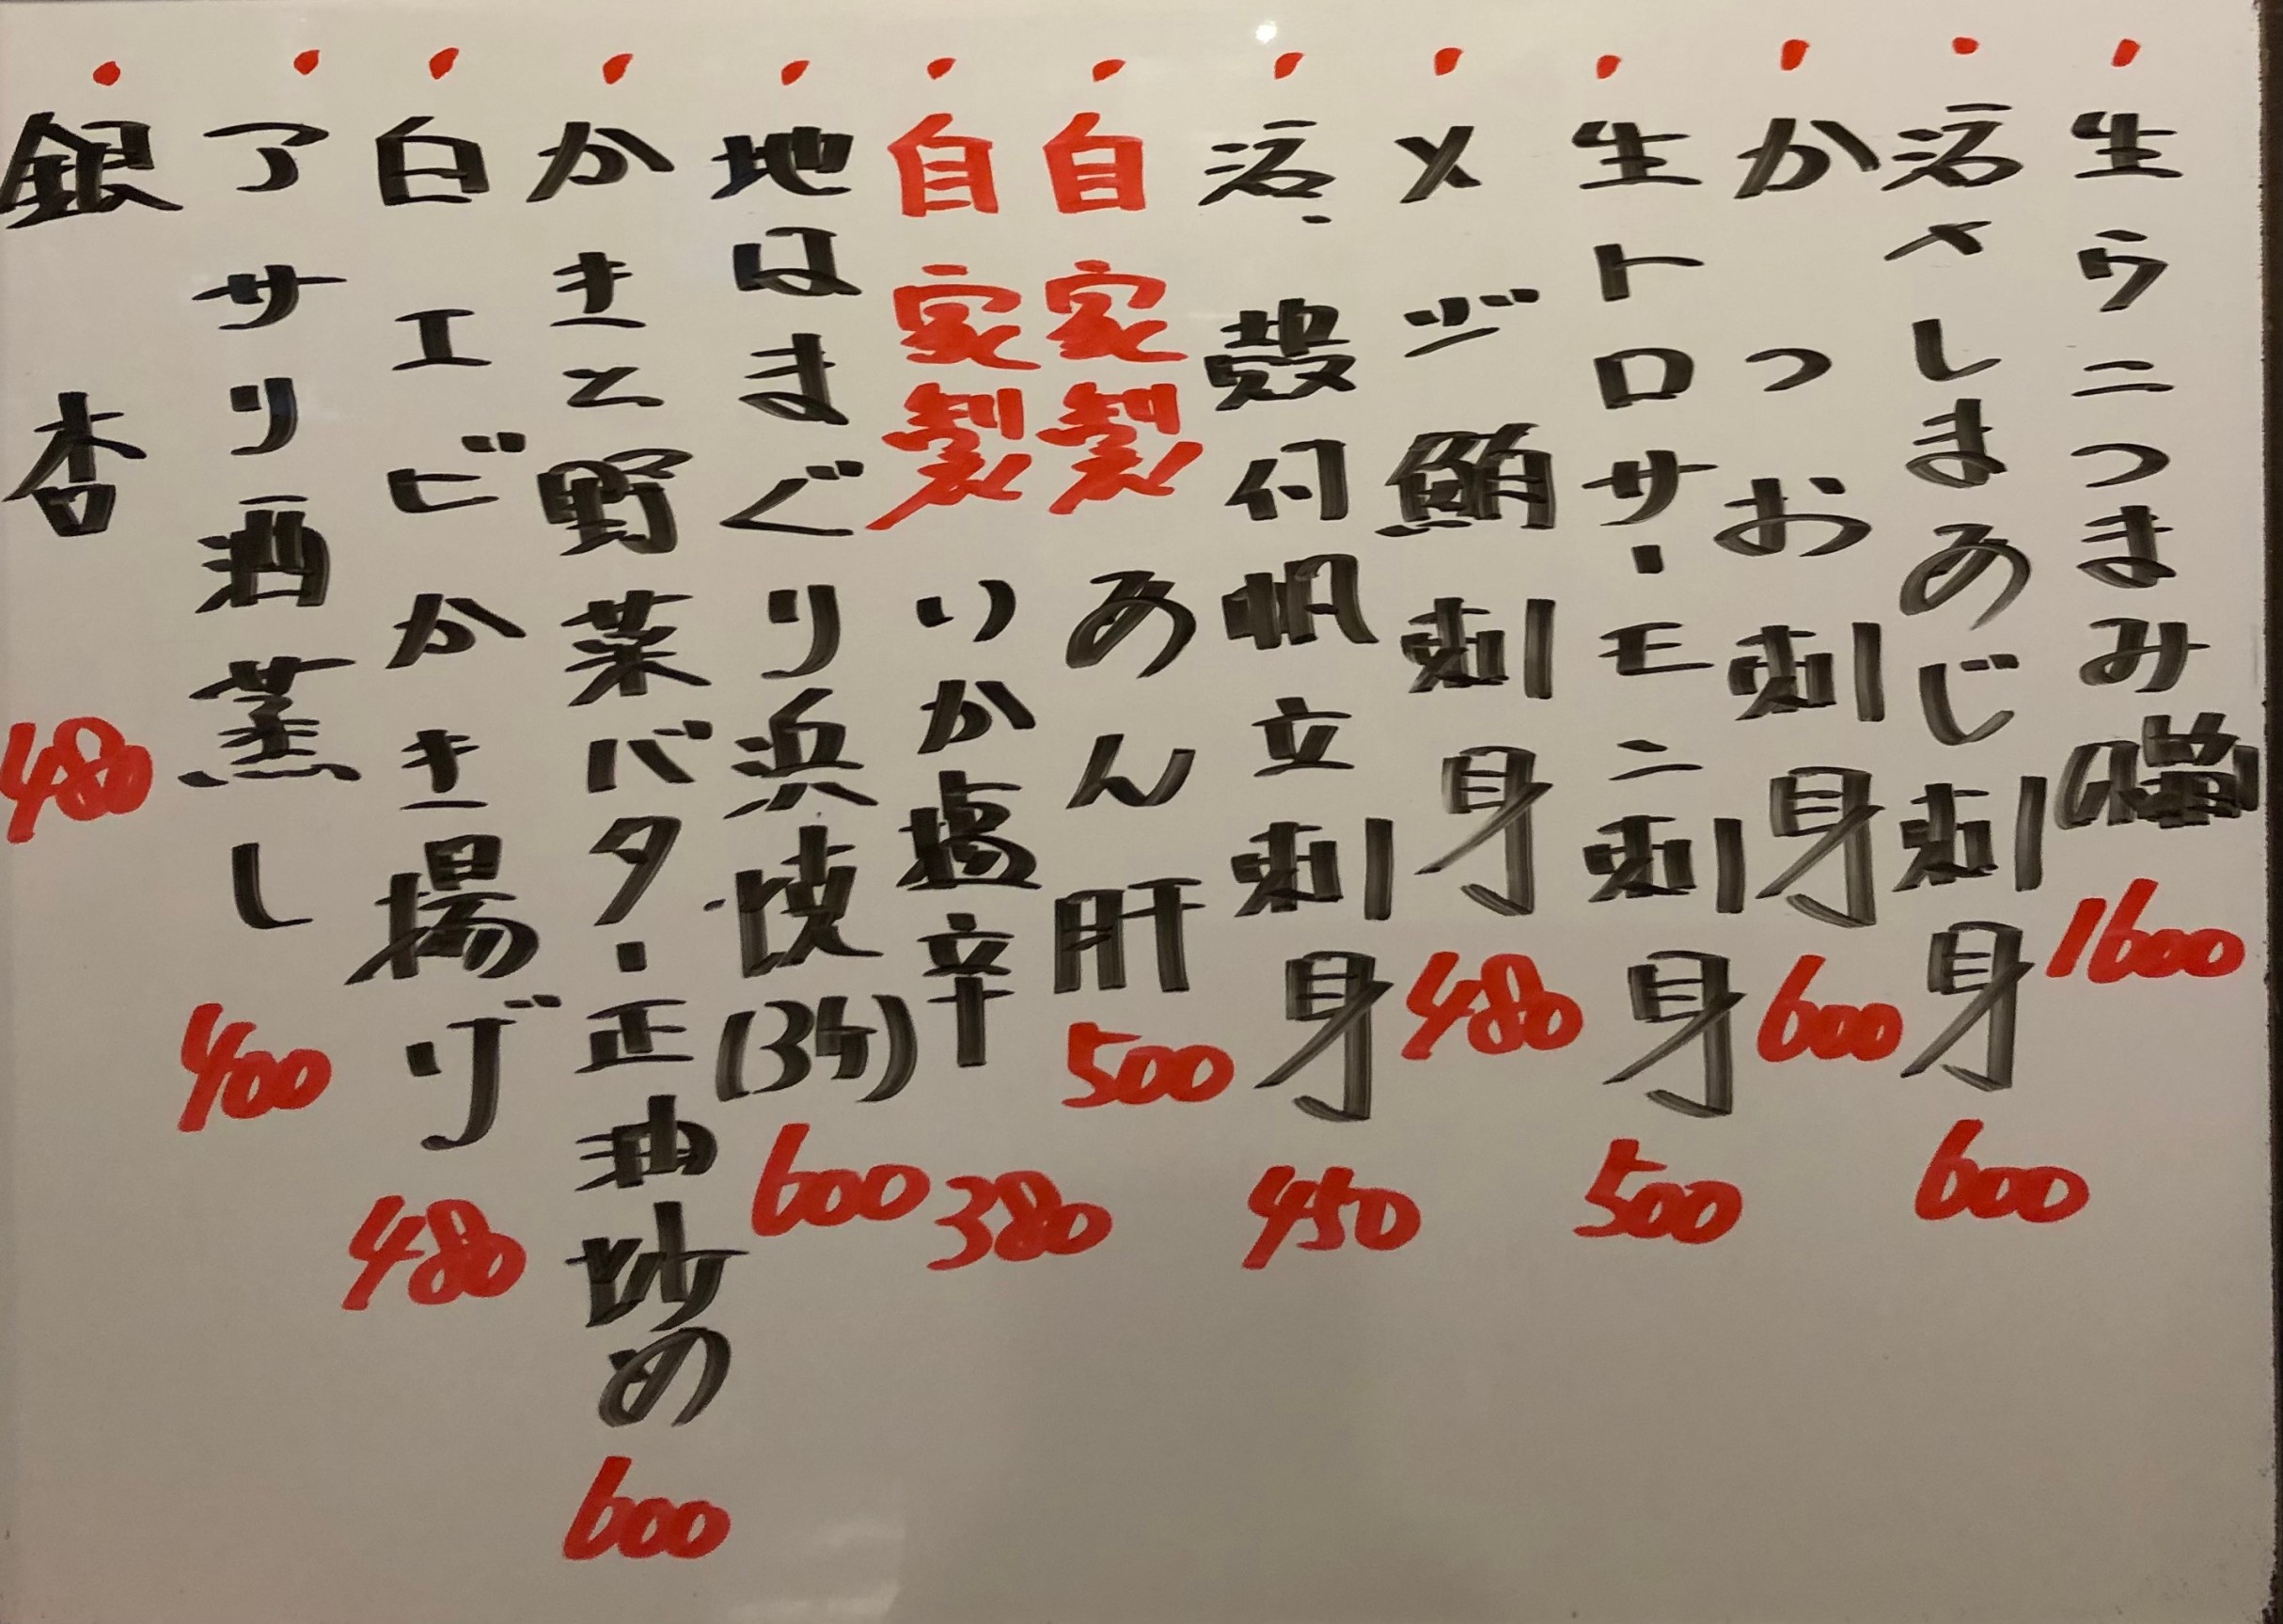 ・生ウニつまみ 1600
・活〆しまあじ刺身 600
・かつお刺身 600
・生トロサーモン刺身 500
・メジ鮪刺身 480
・活、殻付帆立刺身 450
・自家製あん肝 500
・自家製いか塩辛 380
・地はまぐり浜焼(3ケ) 600
・かきと野菜バター正油炒め 600
・白エビかき揚げ 480
・アサリ酒蒸し 400
・銀杏 480